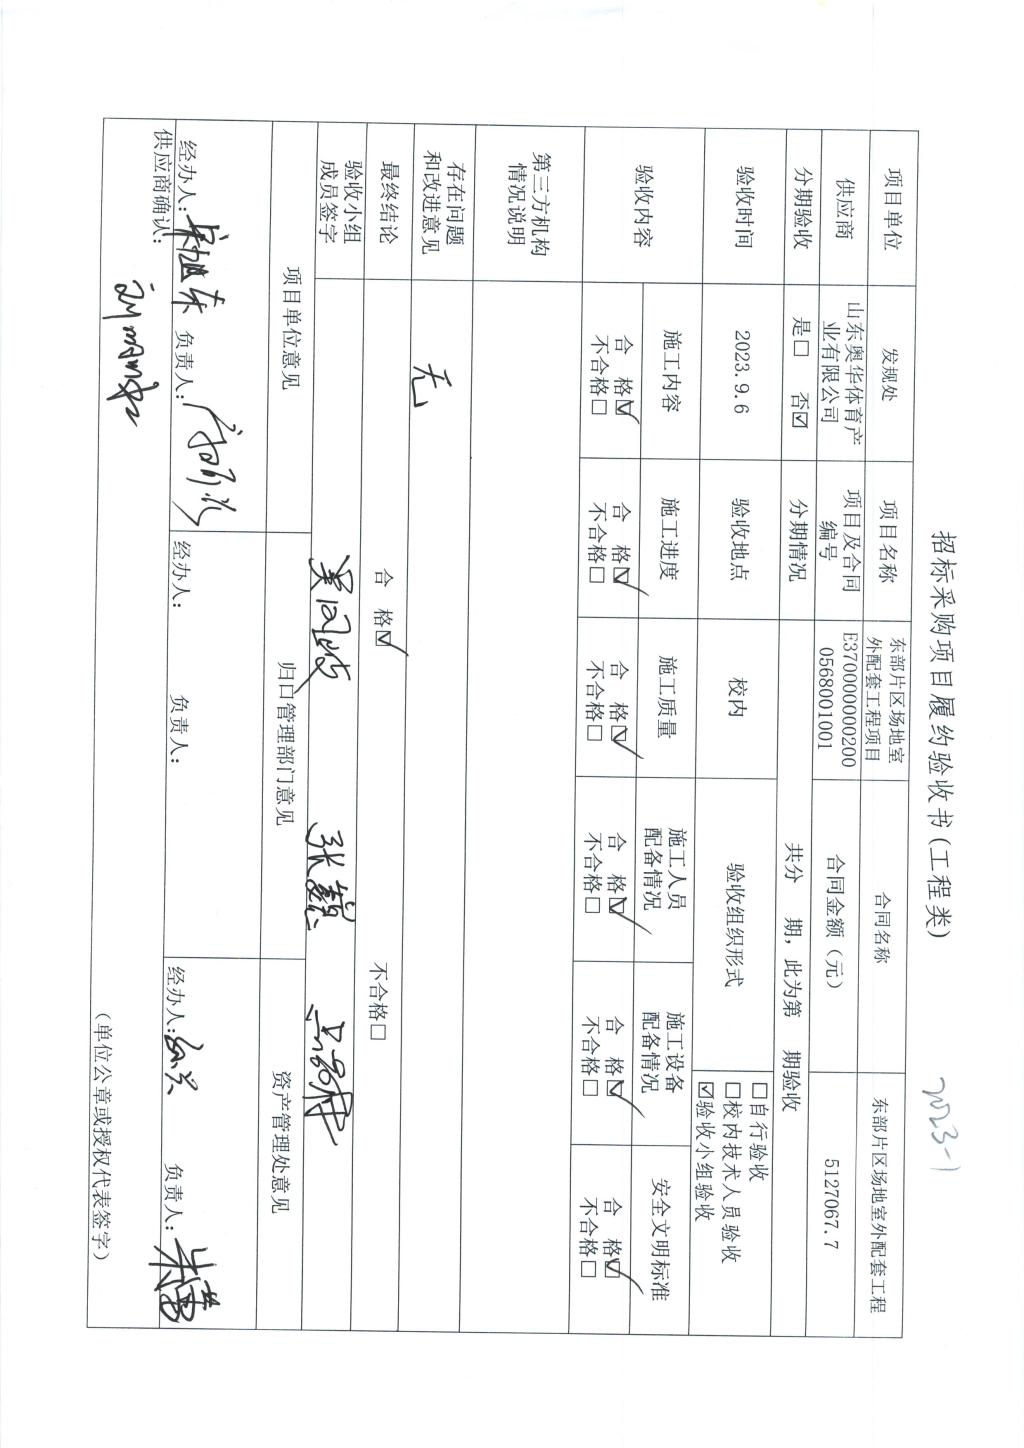 招标采购项目履约验收书(工程类)
2023-1
项目单位 发规处 项目名称 东部片区场地室外配套工程项目 合同名称 东部片区场地室外配套工程
供应商 山东奥华体育产业有限公司 项目及合同编号 E37000000002000568001001 合同金额（元） 5127067.7
分期验收 是□ 否☑ 分期情况 共分 期，此为第 期验收
验收时间 2023.9.6 验收地点 校内 验收组织形式
□自行验收
□校内技术人员验收
☑验收小组验收
验收内容 施工内容 施工进度 施工质量 施工人员配备情况 施工设备配备情况 安全文明标准
合 格☑ 合 格☑ 合 格☑ 合 格☑ 合 格☑ 合 格☑
不合格□ 不合格□ 不合格□ 不合格□ 不合格□ 不合格□
第三方机构
情况说明
存在问题
和改进意见
无
最终结论 合 格☑ 不合格□
验收小组
成员签字
项目单位意见 归口管理部门意见 资产管理处意见
经办人： 负责人： 经办人： 负责人： 经办人： 负责人：
供应商确认：
（单位公章或授权代表签字）